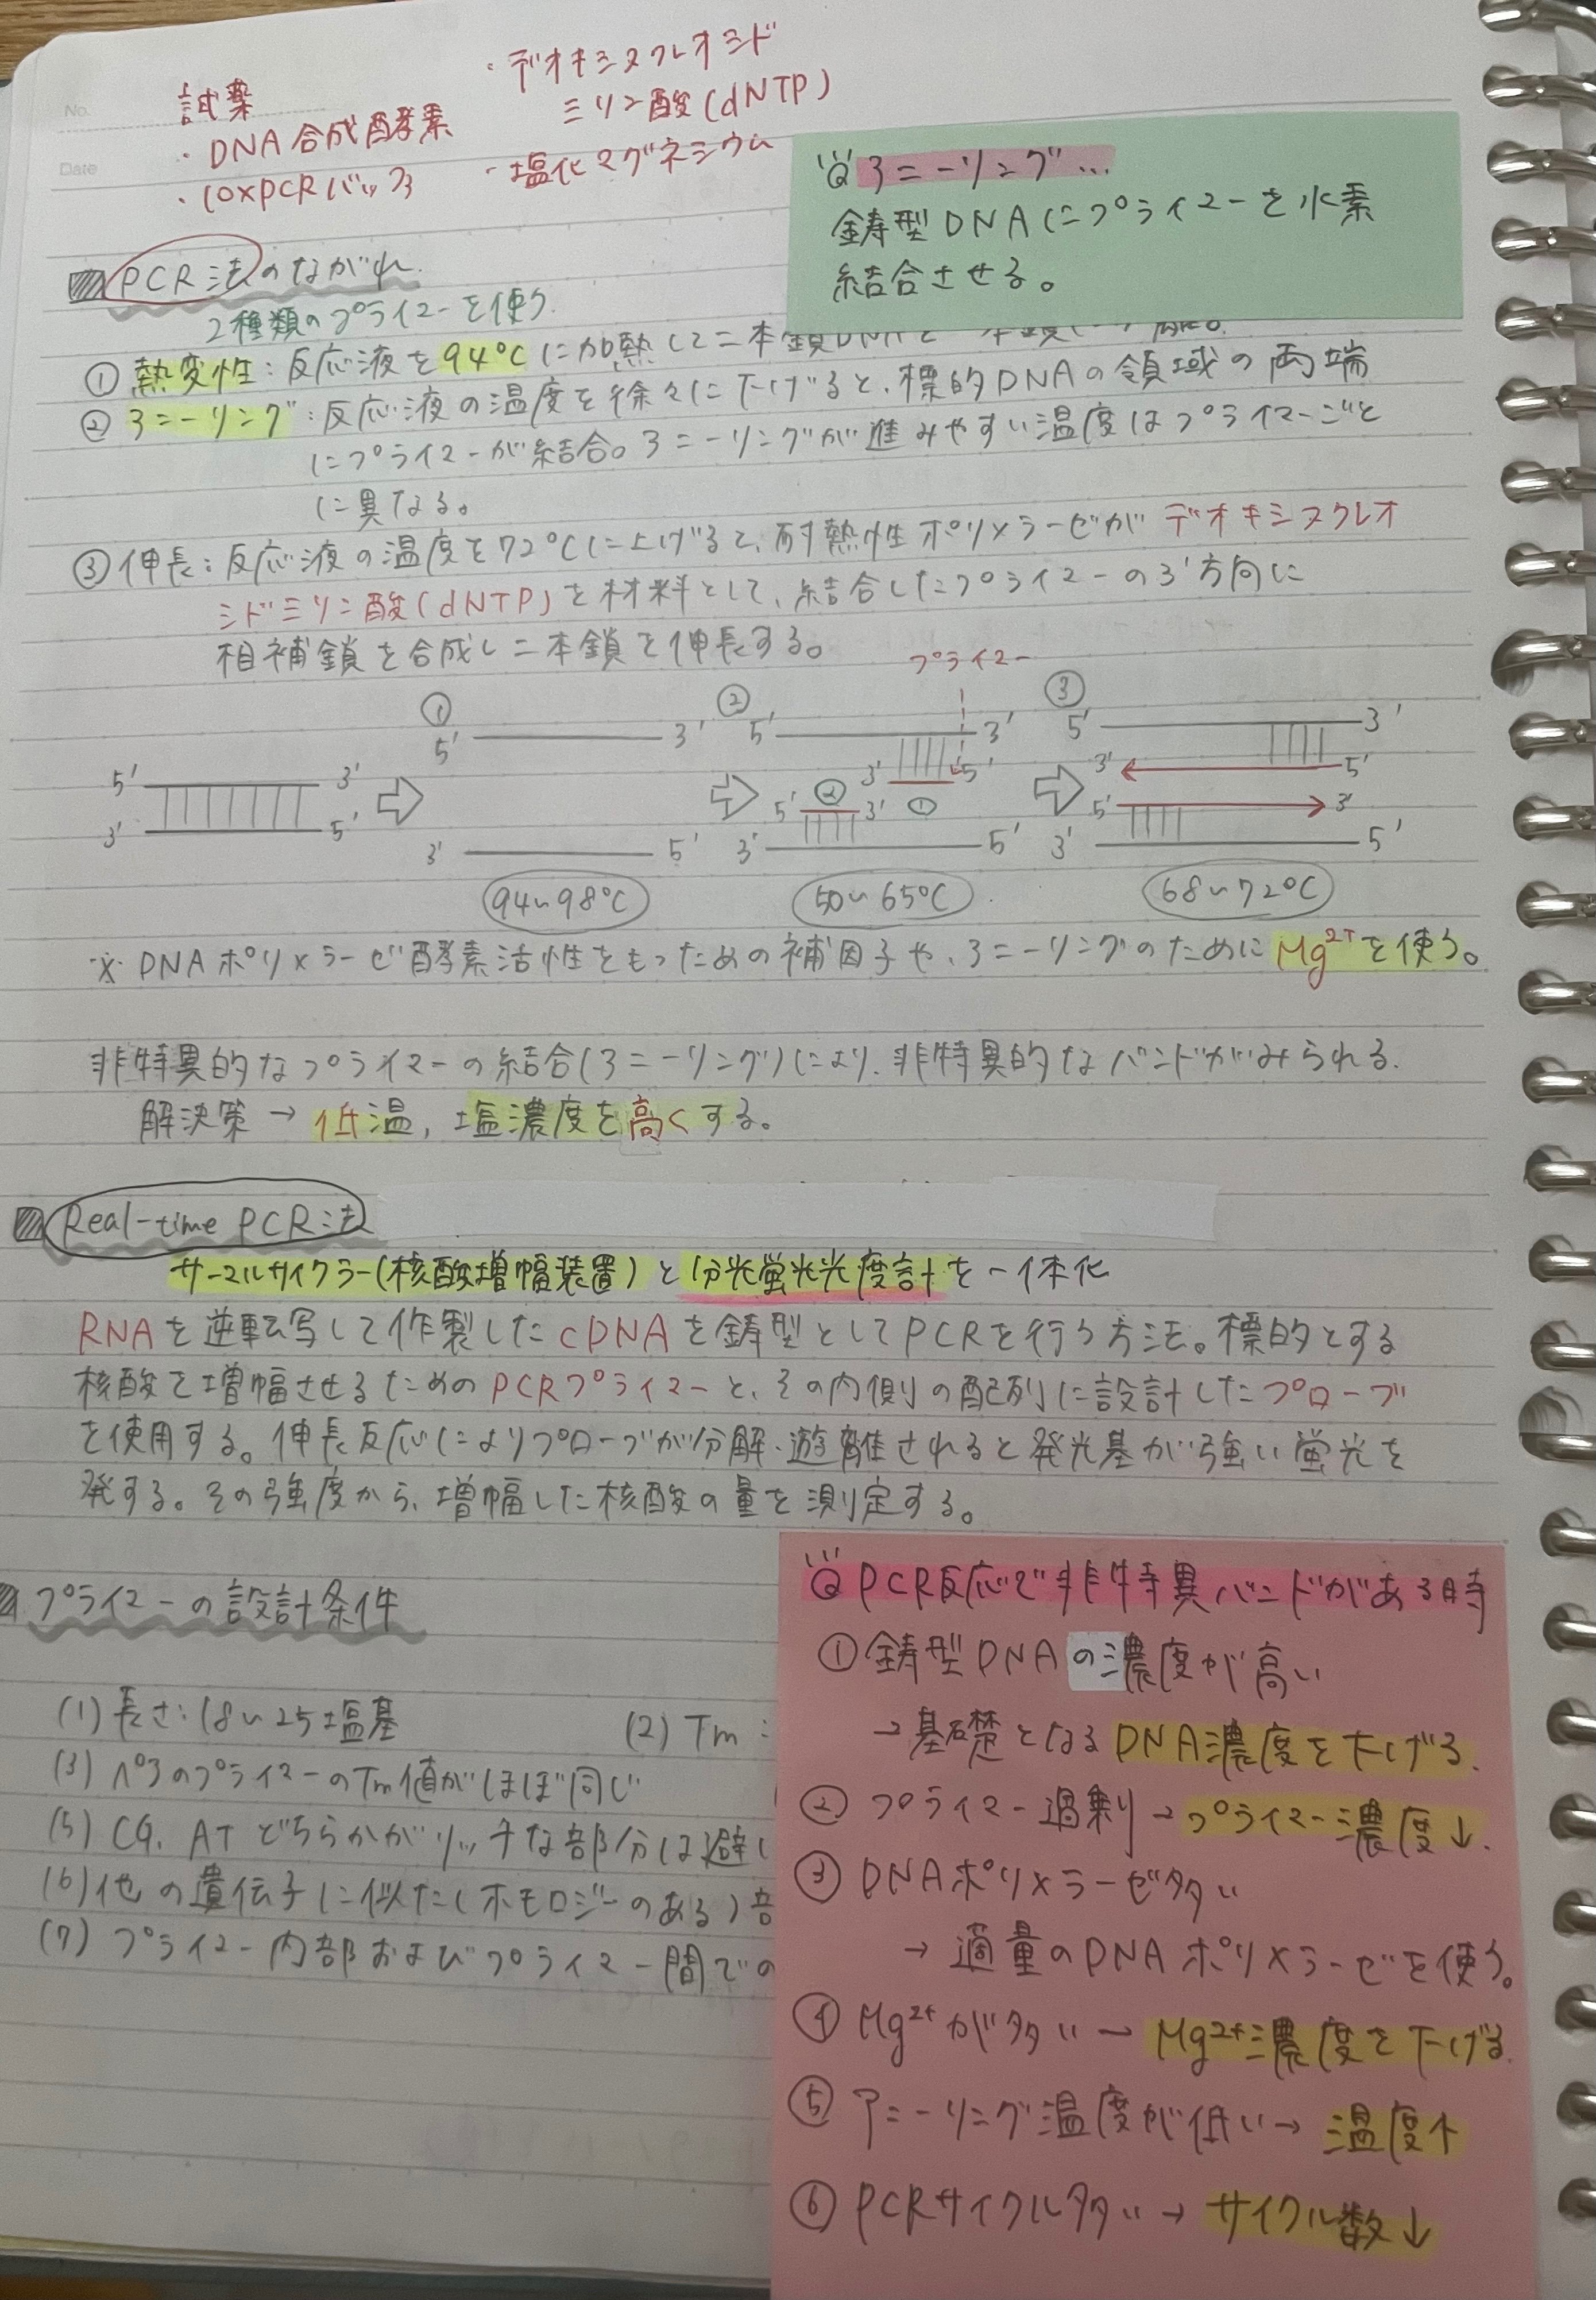 No.
Date
試薬
・DNA合成酵素
・10×PCRバッファ
・デオキシヌクレオシド
三リン酸(dNTP)
・塩化マグネシウム
アニーリング…
鋳型DNAにプライマーを水素
結合させる。
PCR法のながれ
2種類のプライマーを使う
① 熱変性:反応液を94℃に加熱して二本鎖DNAを
② アニーリング:反応液の温度を徐々に下げると、標的DNAの領域の両端
にプライマーが結合。アニーリングが進みやすい温度はプライマーごと
に異なる。
③ 伸長:反応液の温度を72℃に上げると、耐熱性ポリメラーゼがデオキシヌクレオ
シド三リン酸(dNTP)を材料として、結合したプライマーの3'方向に
相補鎖を合成し二本鎖を伸長する。
プライマー
① ② ③
5' 3' 5' 3' 5' 3'
3' 5' 3' 5'
5' 3' 5' ② 3' ① 5' 3'
3' 5' 3' 5' 3' 5' 3' 5'
94~98℃ 50~65℃ 68~72℃
※ DNAポリメラーゼ酵素活性をもつための補因子や、アニーリングのためにMg²⁺を使う。
非特異的なプライマーの結合(アニーリング)により、非特異的なバンドがみられる。
解決策→低温,塩濃度を高くする。
Real-time PCR法
サーマルサイクラー(核酸増幅装置)と分光蛍光光度計を一体化
RNAを逆転写して作製したcDNAを鋳型としてPCRを行う方法。標的とする
核酸を増幅させるためのPCRプライマーと、その内側の配列に設計したプローブ
を使用する。伸長反応によりプローブが分解・遊離されると発光基が強い蛍光を
発する。その強度から、増幅した核酸の量を測定する。
プライマーの設計条件
(1)長さ:18~25塩基 (2) Tm:
(3) ペアのプライマーのTm値がほぼ同じ
(5) CG、ATどちらかがリッチな部分は避
(6)他の遺伝子に似た(ホモロジーのある)
(7) プライマー内部およびプライマー間での
PCR反応で非特異バンドがある時
①鋳型DNAの濃度が高い
→基礎となるDNA濃度を下げる。
② プライマー過剰→プライマー濃度↓.
③ DNAポリメラーゼ多い
→ 適量のDNAポリメラーゼを使う。
④ Mg²⁺が多い→Mg²⁺濃度を下げる.
⑤ アニーリング温度が低い→温度↑
⑥ PCRサイクル多い→サイクル数↓